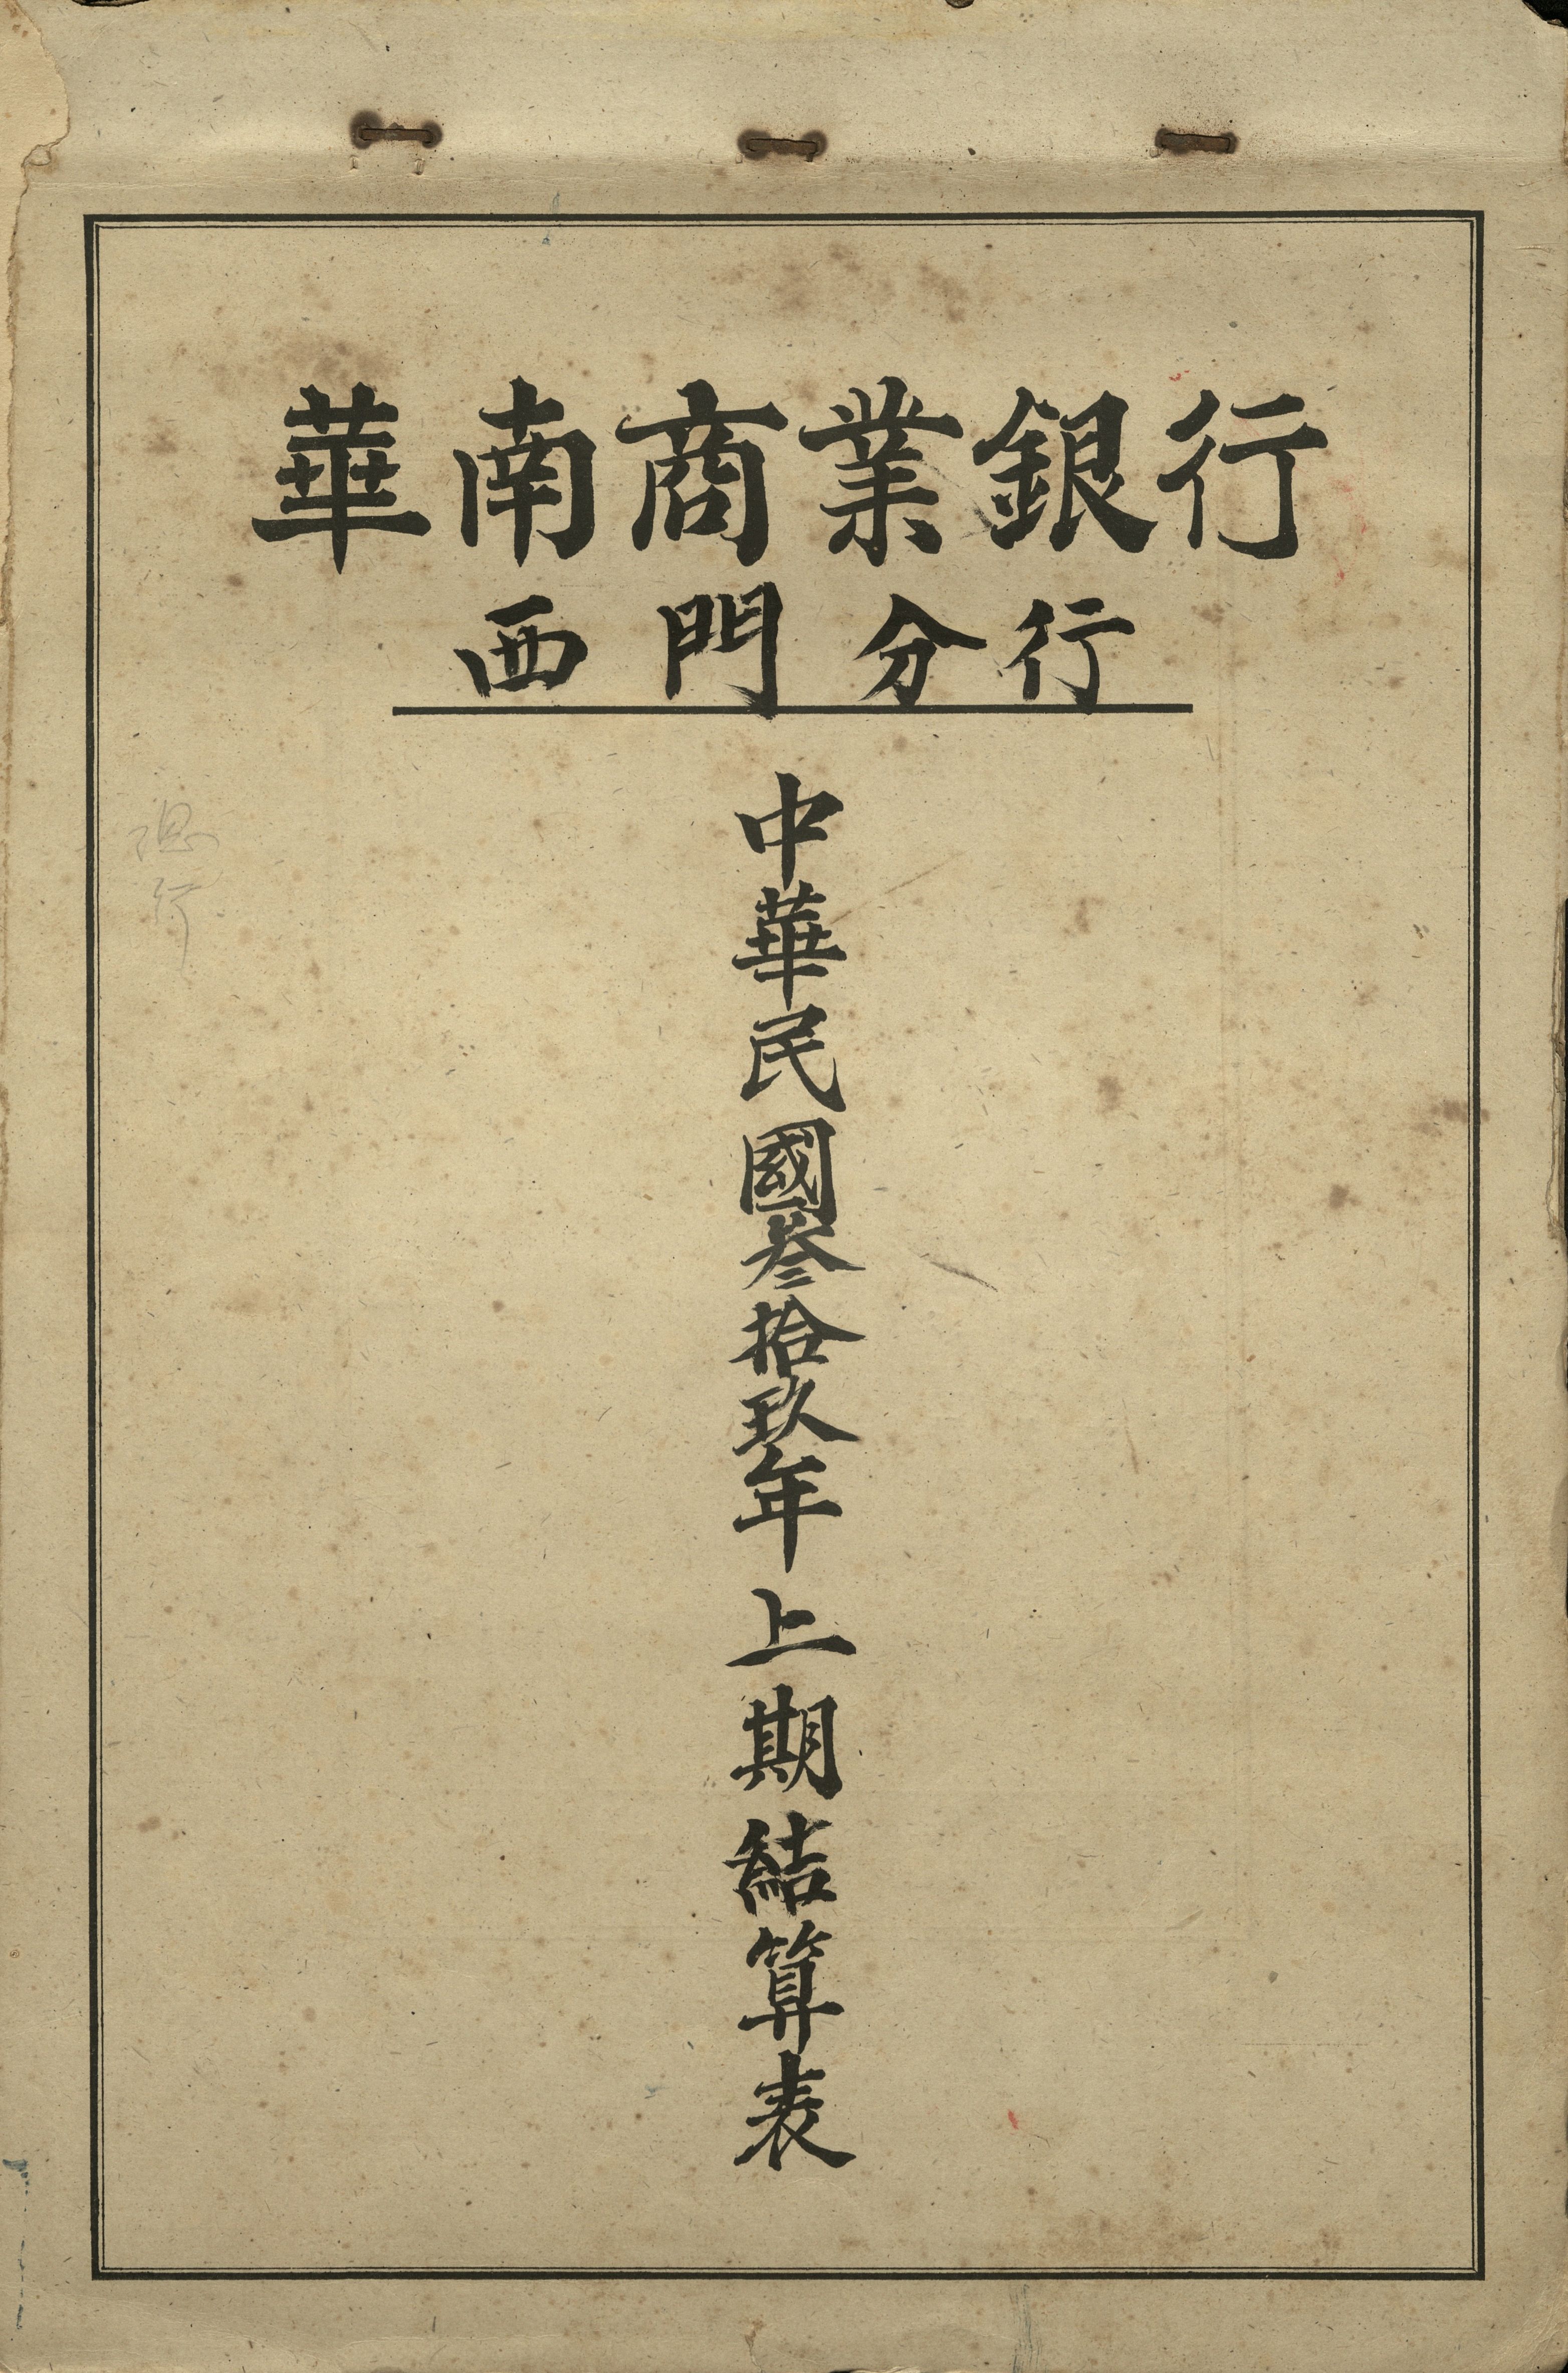 華南商業銀行
西門分行
中華民國叁拾玖年上期結算表